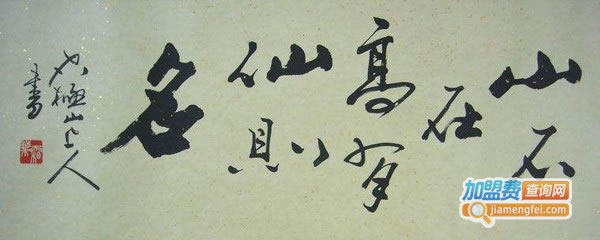 山不
在
高有
仙則
名
極山人
書
加盟费查询网
jiamengfei.com